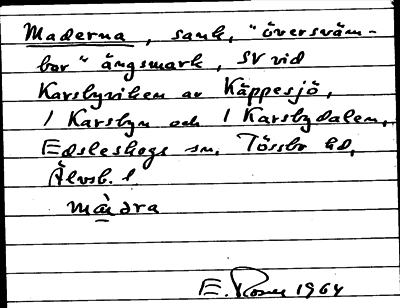 Maderna, sank, "översväm-
bar" ängsmark, SV vid
Karsbyviken av Käppesjö,
1 Karsbyn och 1 Karsbydalen,
Edsleskogs sn, Tössbo hd,
Älvsb. l.
màdra
E. Rosell 1964